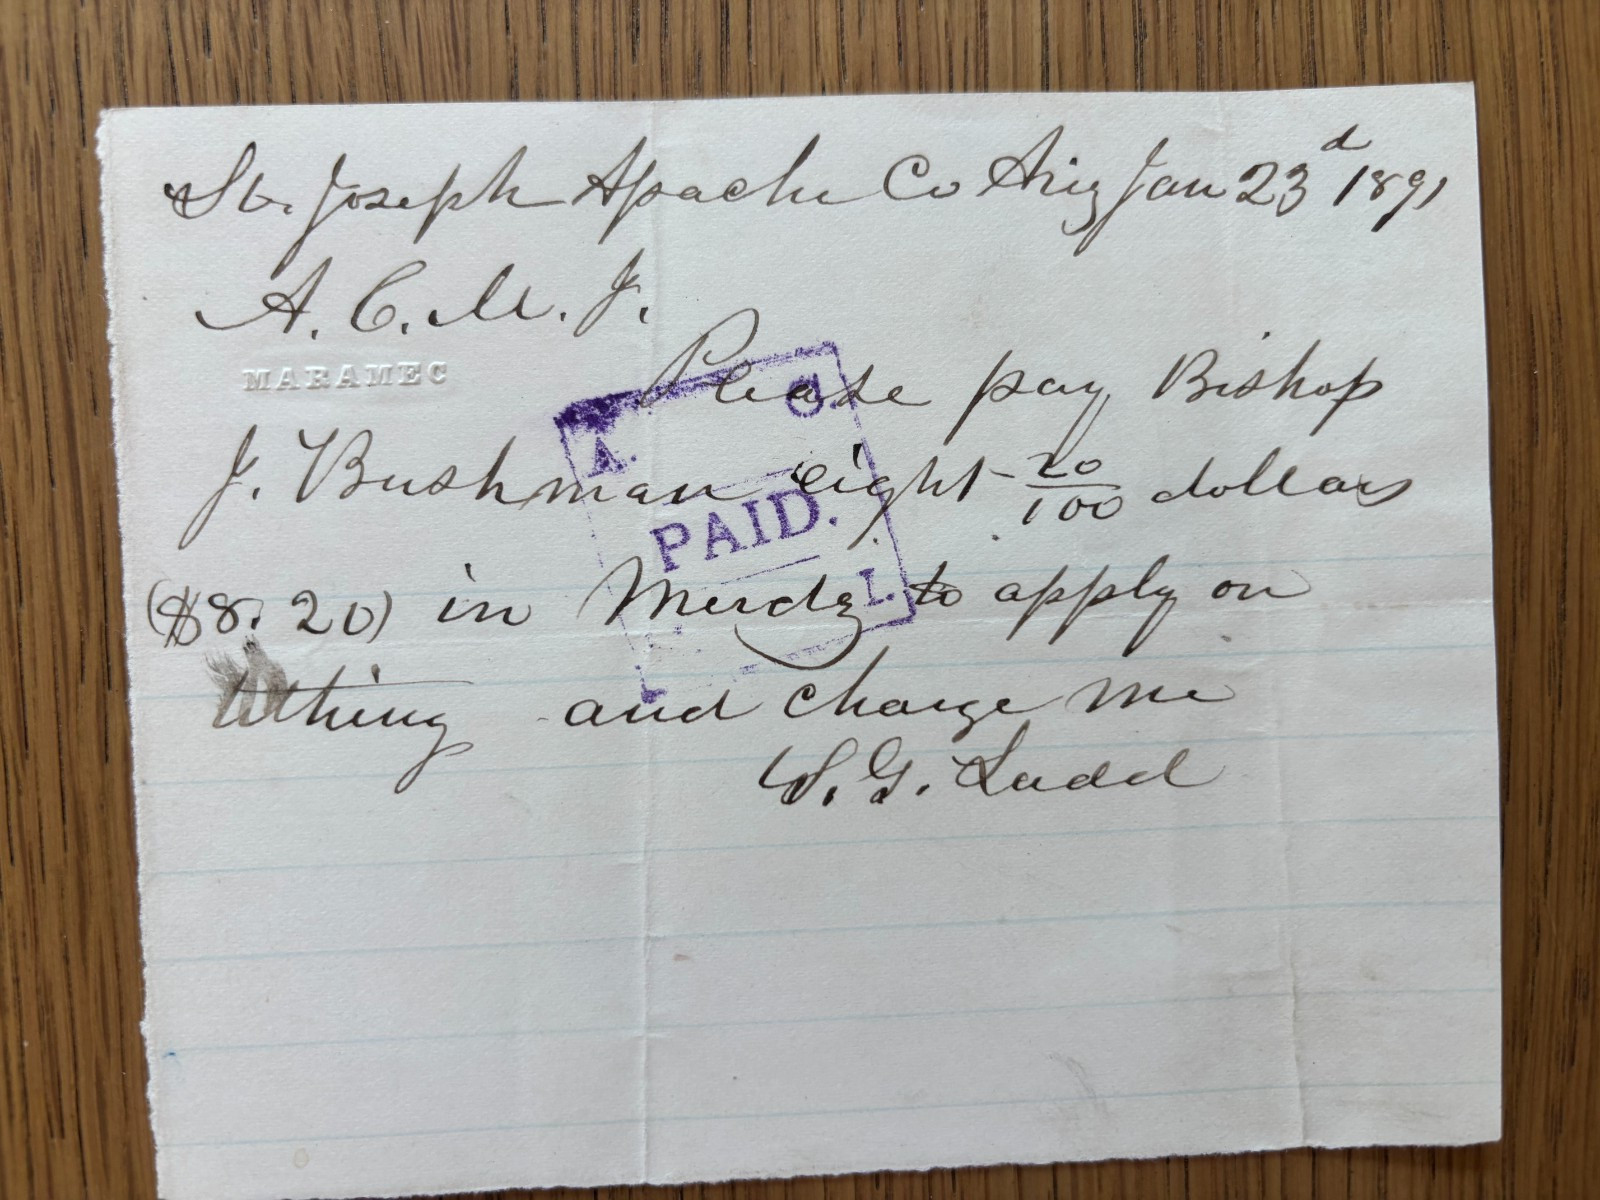 St. Joseph Apache Co Ariz Jan 23d 1891
A. C. M. I.
MARAMEC
Please pay Bishop
J. Bushman eight 20/100 dollars
($8.20) in Merdz to apply on
tithing and charge me
S. G. Ladd
A. C.
PAID.
I.